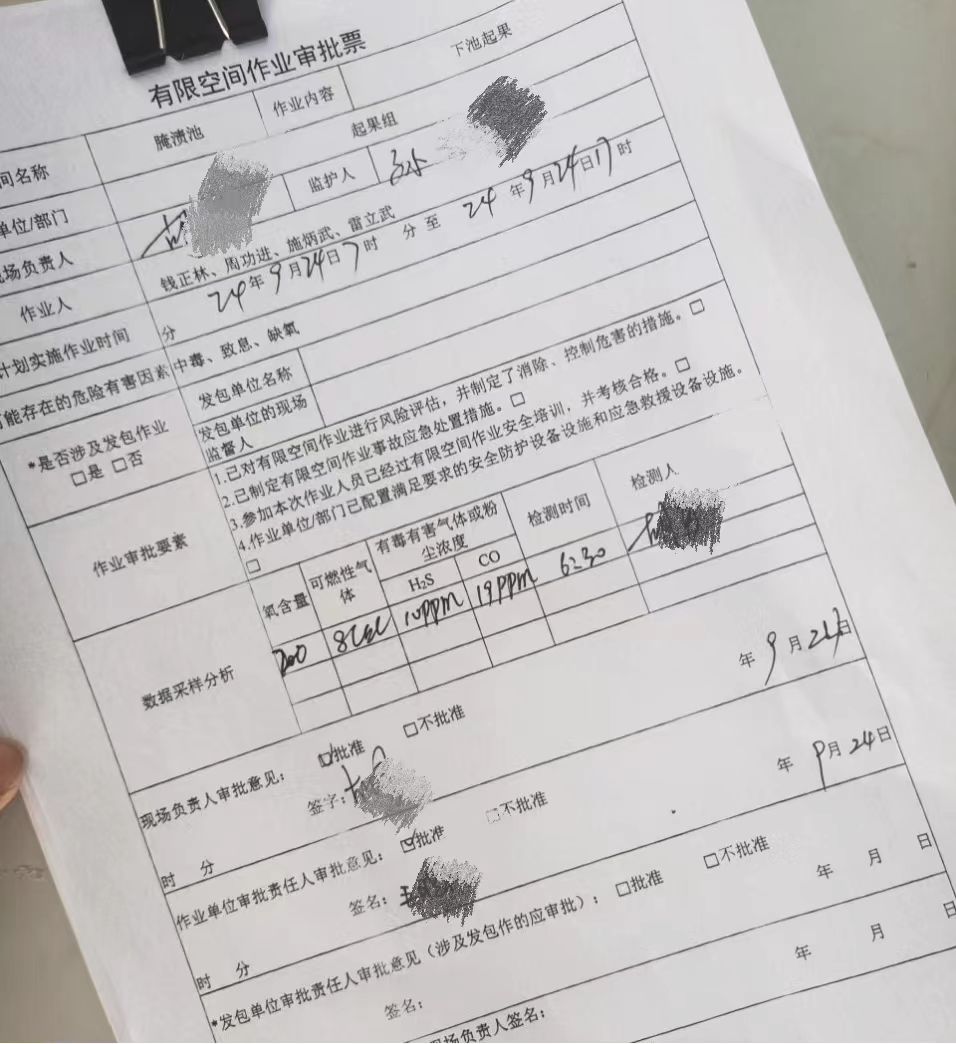 有限空间作业审批票
间名称 腌渍池 作业内容 下池起果
单位/部门 起果组
现场负责人 监护人
作业人 钱正林、周功进、施炳武、雷立武
计划实施作业时间 24年9月24日7时 分至 24年9月24日17时
分
可能存在的危险有害因素 中毒、致息、缺氧
*是否涉及发包作业 发包单位名称
□是 □否 发包单位的现场
监督人
作业审批要素 1.已对有限空间作业进行风险评估，并制定了消除、控制危害的措施。□
2.已制定有限空间作业事故应急处置措施。□
3.参加本次作业人员已经过有限空间作业安全培训，并考核合格。□
4.作业单位/部门已配置满足要求的安全防护设备设施和应急救援设备设施。
□
数据采样分析 氧含量 可燃性气体 有毒有害气体或粉尘浓度 检测时间 检测人
H₂S CO
10PPM 19PPM 6:30
现场负责人审批意见： ☑批准 □不批准
签字： 年9月24日
时 分
作业单位审批责任人审批意见： ☑批准 □不批准
签名： 年9月24日
时 分
*发包单位审批责任人审批意见（涉及发包作的应审批）： □批准 □不批准
签名： 年 月 日
现场负责人签名： 年 月 日